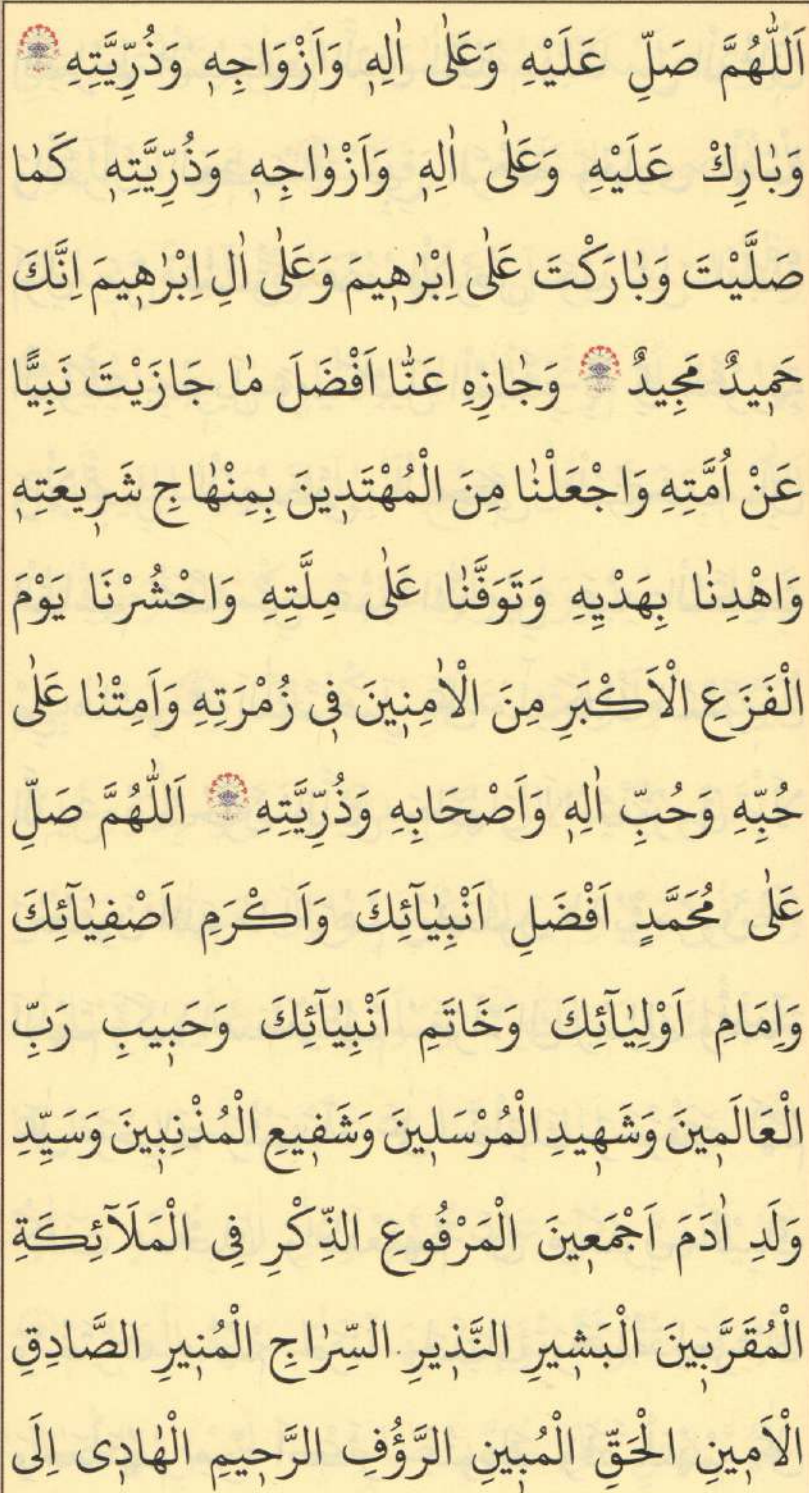 اَللّٰهُمَّ صَلِّ عَلَيْهِ وَعَلٰى اٰلِهٖ وَاَزْوَاجِهٖ وَذُرِّيَّتِهٖ
وَبٰارِكْ عَلَيْهِ وَعَلٰى اٰلِهٖ وَاَزْوٰاجِهٖ وَذُرِّيَّتِهٖ كَمٰا
صَلَّيْتَ وَبٰارَكْتَ عَلٰى اِبْرٰهٖيمَ وَعَلٰى اٰلِ اِبْرٰهٖيمَ اِنَّكَ
حَمٖيدٌ مَجٖيدٌ وَجٰازِهِ عَنّٰا اَفْضَلَ مٰا جَازَيْتَ نَبِيًّا
عَنْ اُمَّتِهِ وَاجْعَلْنٰا مِنَ الْمُهْتَدٖينَ بِمِنْهٰاجِ شَرٖيعَتِهٖ
وَاهْدِنٰا بِهَدْيِهِ وَتَوَفَّنٰا عَلٰى مِلَّتِهِ وَاحْشُرْنَا يَوْمَ
الْفَزَعِ الْاَكْبَرِ مِنَ الْاٰمِنٖينَ فٖى زُمْرَتِهِ وَاَمِتْنٰا عَلٰى
حُبِّهِ وَحُبِّ اٰلِهٖ وَاَصْحَابِهِ وَذُرِّيَّتِهِ اَللّٰهُمَّ صَلِّ
عَلٰى مُحَمَّدٍ اَفْضَلِ اَنْبِيٰآئِكَ وَاَكْرَمِ اَصْفِيٰآئِكَ
وَاِمَامِ اَوْلِيٰآئِكَ وَخَاتَمِ اَنْبِيٰآئِكَ وَحَبٖيبِ رَبِّ
الْعَالَمٖينَ وَشَهٖيدِ الْمُرْسَلٖينَ وَشَفٖيعِ الْمُذْنِبٖينَ وَسَيِّدِ
وَلَدِ اٰدَمَ اَجْمَعٖينَ الْمَرْفُوعِ الذِّكْرِ فِى الْمَلَآئِكَةِ
الْمُقَرَّبٖينَ الْبَشٖيرِ النَّذٖيرِ السِّرٰاجِ الْمُنٖيرِ الصَّادِقِ
الْاَمٖينِ الْحَقِّ الْمُبٖينِ الرَّؤُفِ الرَّحٖيمِ الْهٰادٖى اِلَى